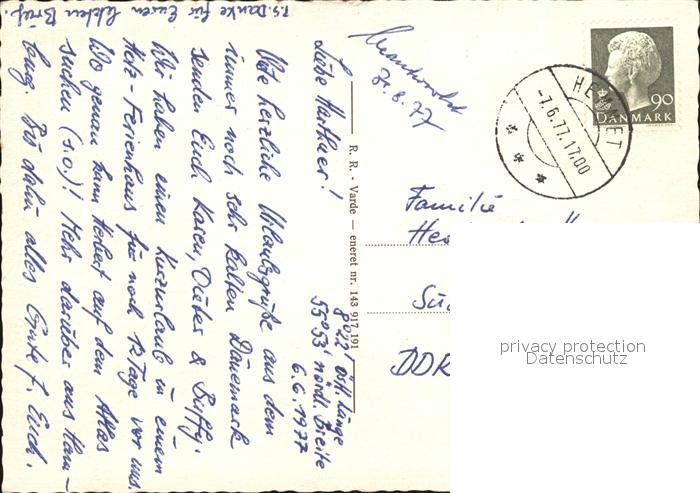 8°22' östl. Länge
55°53' nördl. Breite
6.6.1977
Liebe
Viele herzliche Urlaubsgrüße aus dem
immer noch sehr kalten Dänemark
senden Euch Karen, Dieter &
Wir haben einen Kurzurlaub in einem
Holz-Ferienhaus für noch 12 Tage vor uns.
Wo genau kann Herbert auf dem Atlas
suchen (s.o.)! Mehr darüber aus Ham-
burg. Bis dahin alles Gute f. Euch.
P.S. Danke für Euren lieben Brief.
R. R. - Varde — eneret nr. 143 917 191
-7.6.77.17.00
90
DANMARK
Familie
DDR
privacy protection
Datenschutz